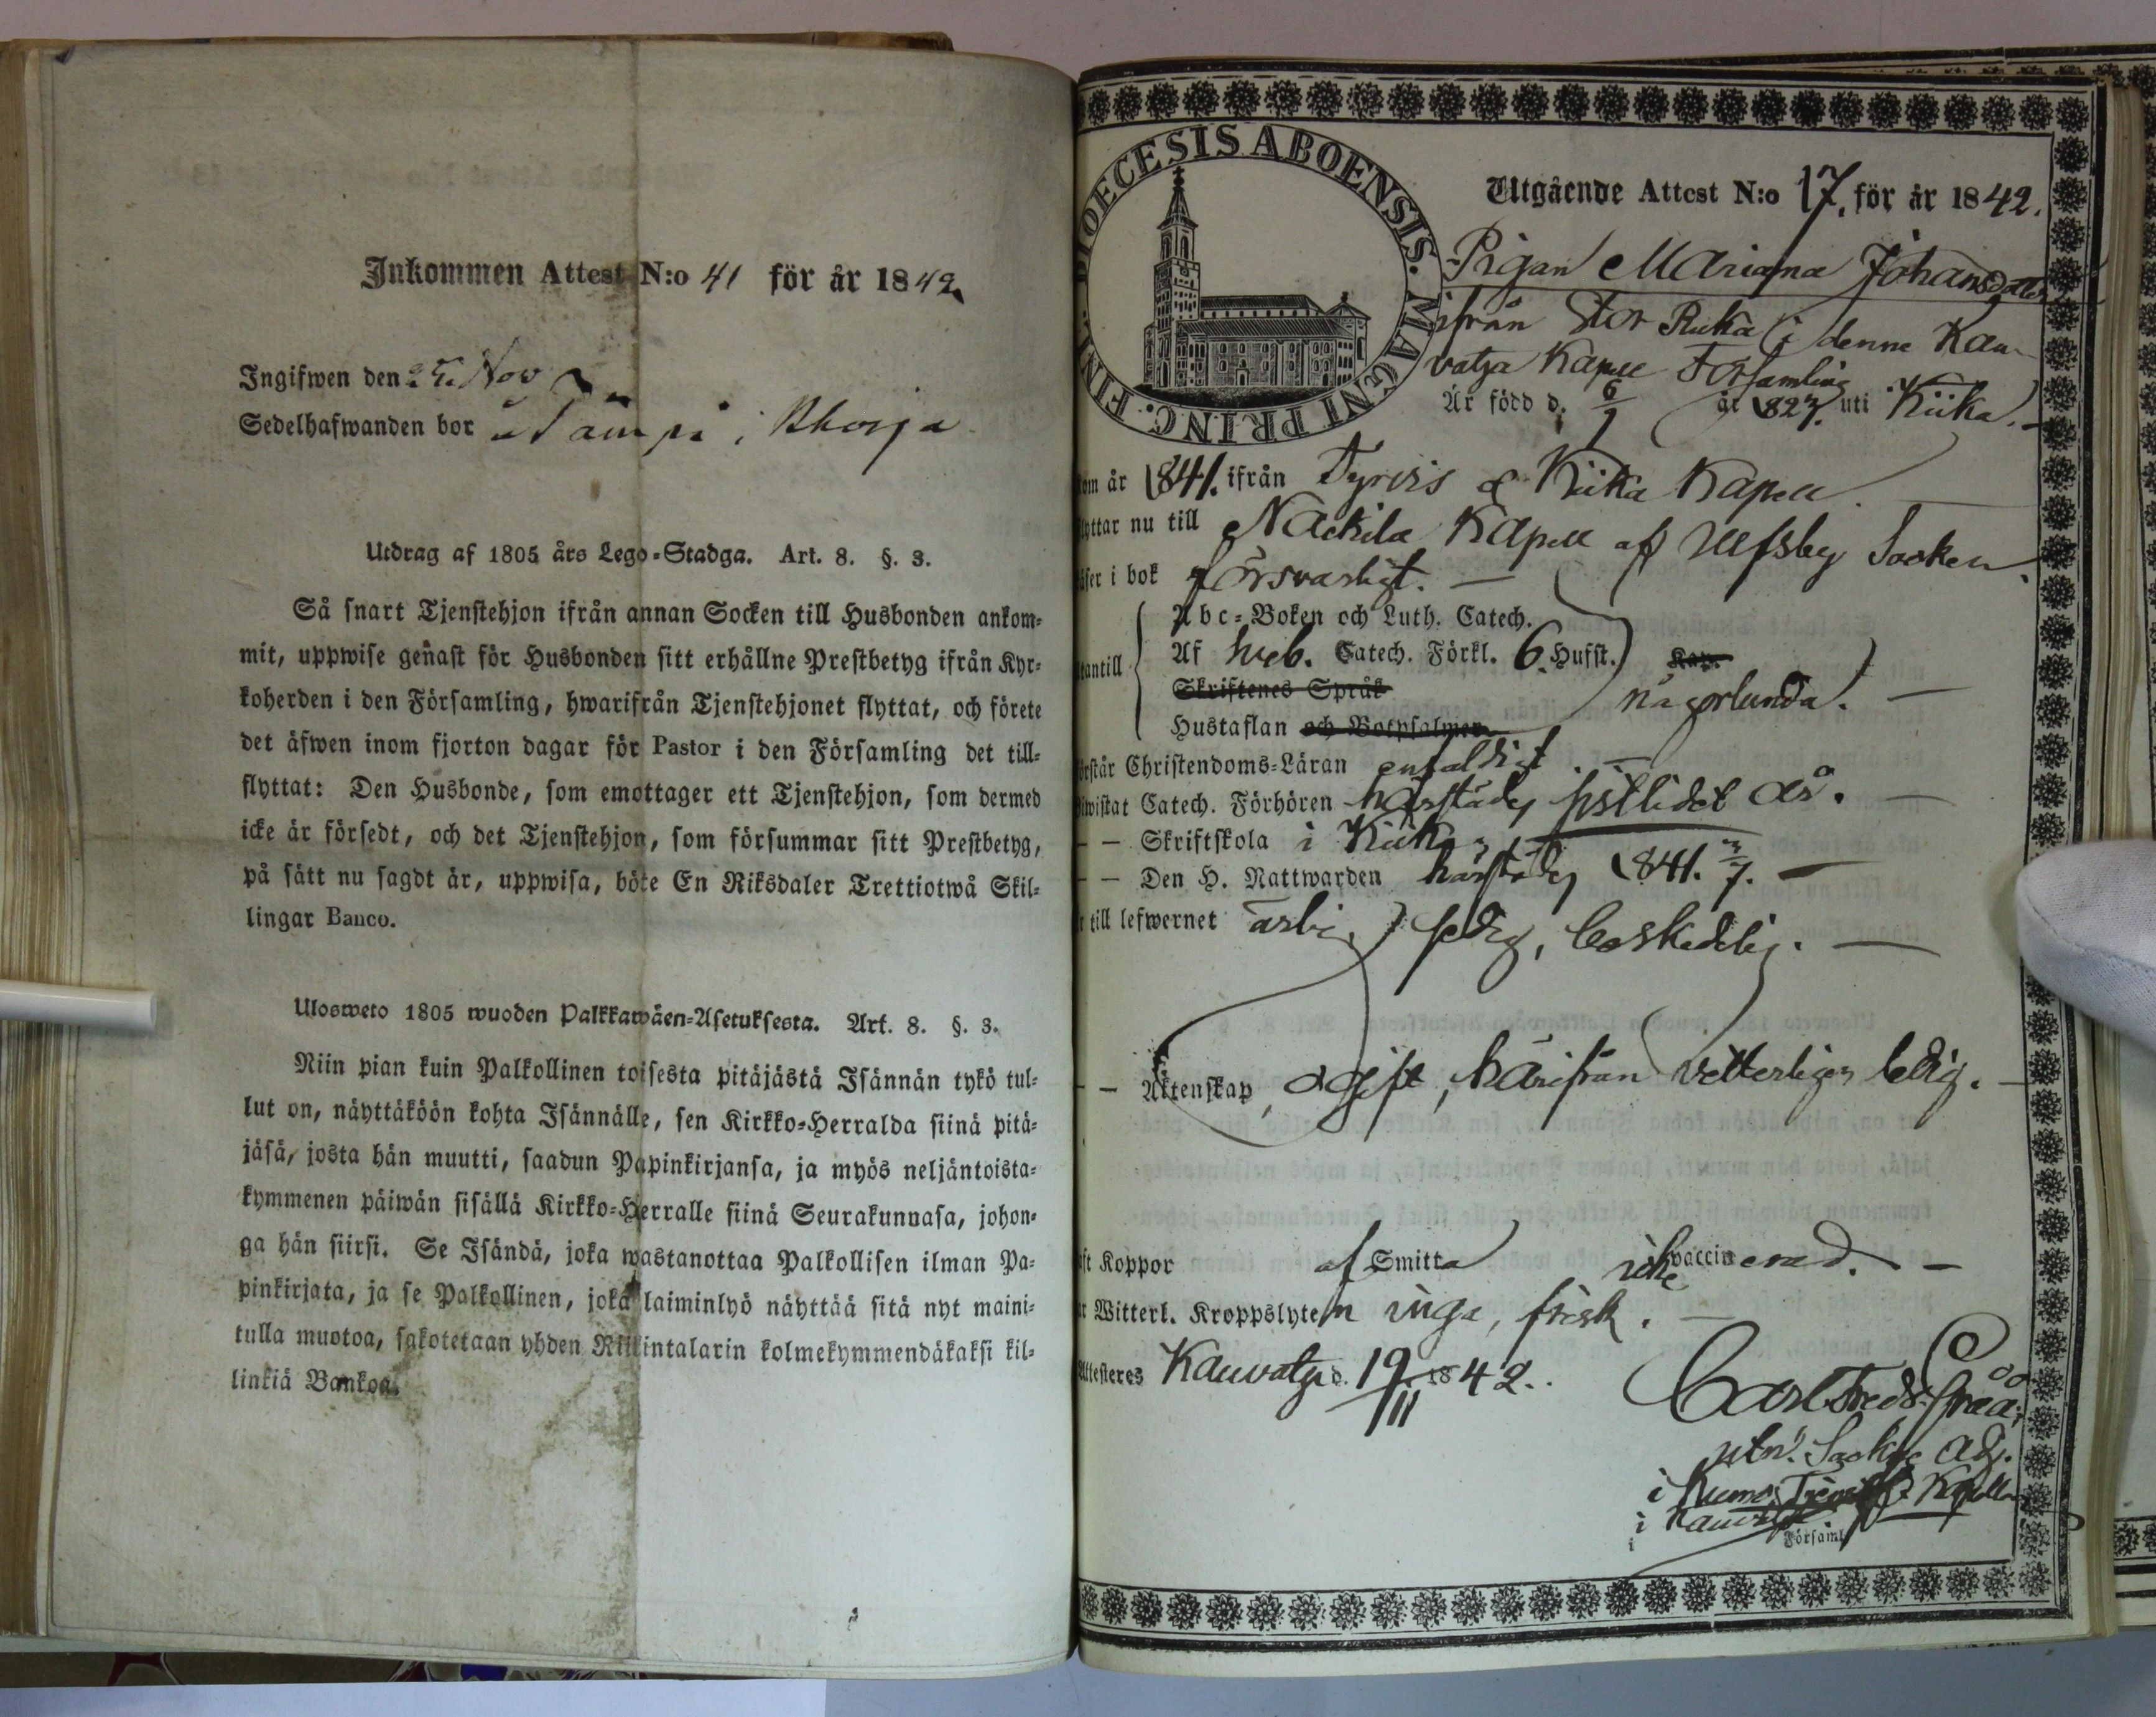 Inkommen Attest N:o 41 för år 1842.
Ingifwen den 25 Nov
Sedelhafwanden bor
Utdrag af 1805 års Lego-Stadga. Art. 8. §. 3.
Så snart Tjenstehjon ifrån annan Socken till Husbonden ankom-
mit, uppwise genast för Husbonden sitt erhållne Prestbetyg ifrån Kyr-
koherden i den Församling, hwarifrån Tjenstehjonet flyttat, och förete
det äfwen inom fjorton dagar för Pastor i den Församling det till-
flyttat: Den Husbonde, som emottager ett Tjenstehjon, som dermed
icke är försedt, och det Tjenstehjon, som försummar sitt Prestbetyg,
på sätt nu sagdt är, uppwisa, böte En Riksdaler Trettiotwå Skil-
lingar Banco.
Ulosweto 1805 wuoden Palkkawäen-Asetuksesta. Art. 8. §. 3.
Niin pian kuin Palkollinen toisesta pitäjästä Isännän tykö tul-
lut on, näyttäköön kohta Isännälle, sen Kirkko-Herralda siinä pitä-
jäsä, josta hän muutti, saadun Papinkirjansa, ja myös neljäntoista-
kymmenen päiwän sisällä Kirkko-Herralle siinä Seurakunnasa, johon-
ga hän siirsi. Se Isändä, joka wastanottaa Palkollisen ilman Pa-
pinkirjata, ja se Palkollinen, joka laiminlyö näyttää sitä nyt maini-
tulla muotoa, sakotetaan yhden Riikintalarin kolmekymmendäkaksi kil-
linkiä Bankoa.
DIOECESIS ABOENSIS. MAGNI PRINC. FINL.
Utgående Attest N:o 17. för år 1842.
Pigan Mariana Johansdotter
ifrån Stor Ruka i denne Kau-
vatza Kapell Församling
Är född d. 6/1 år 1827. uti Kiika.
om år 1841. ifrån Tyrvis & Kiika Kapell.
lyttar nu till Nackila Kapell af Ulfsby Socken.
äser i bok försvarligt.
Abc-Boken och Luth. Catech.
Af Sveb. Catech. Förkl. 6. Hufst.
tantill
Skriftenes Språk
någorlunda.
Hustaflan och Botpsalmer
örstår Christendoms-Läran enfaldigt.
wistat Catech. Förhören härstädes sistlidet år.
– – Skriftskola i Kiika
– – Den H. Nattwarden härstädes 1841. /7.
till lefwernet ärlig, sedig, beskedelig.
– – Äktenskap, ogift, härifrån vetterligen ledig.
ft Koppor af Smitta icke vaccinerad.
Witterl. Kroppslyten inga, frisk.
Attesteres Kauvatza d. 19/11 1842.
Carl Fredr.
Adj.
i Kumo
i Kauvatza
i Församl.